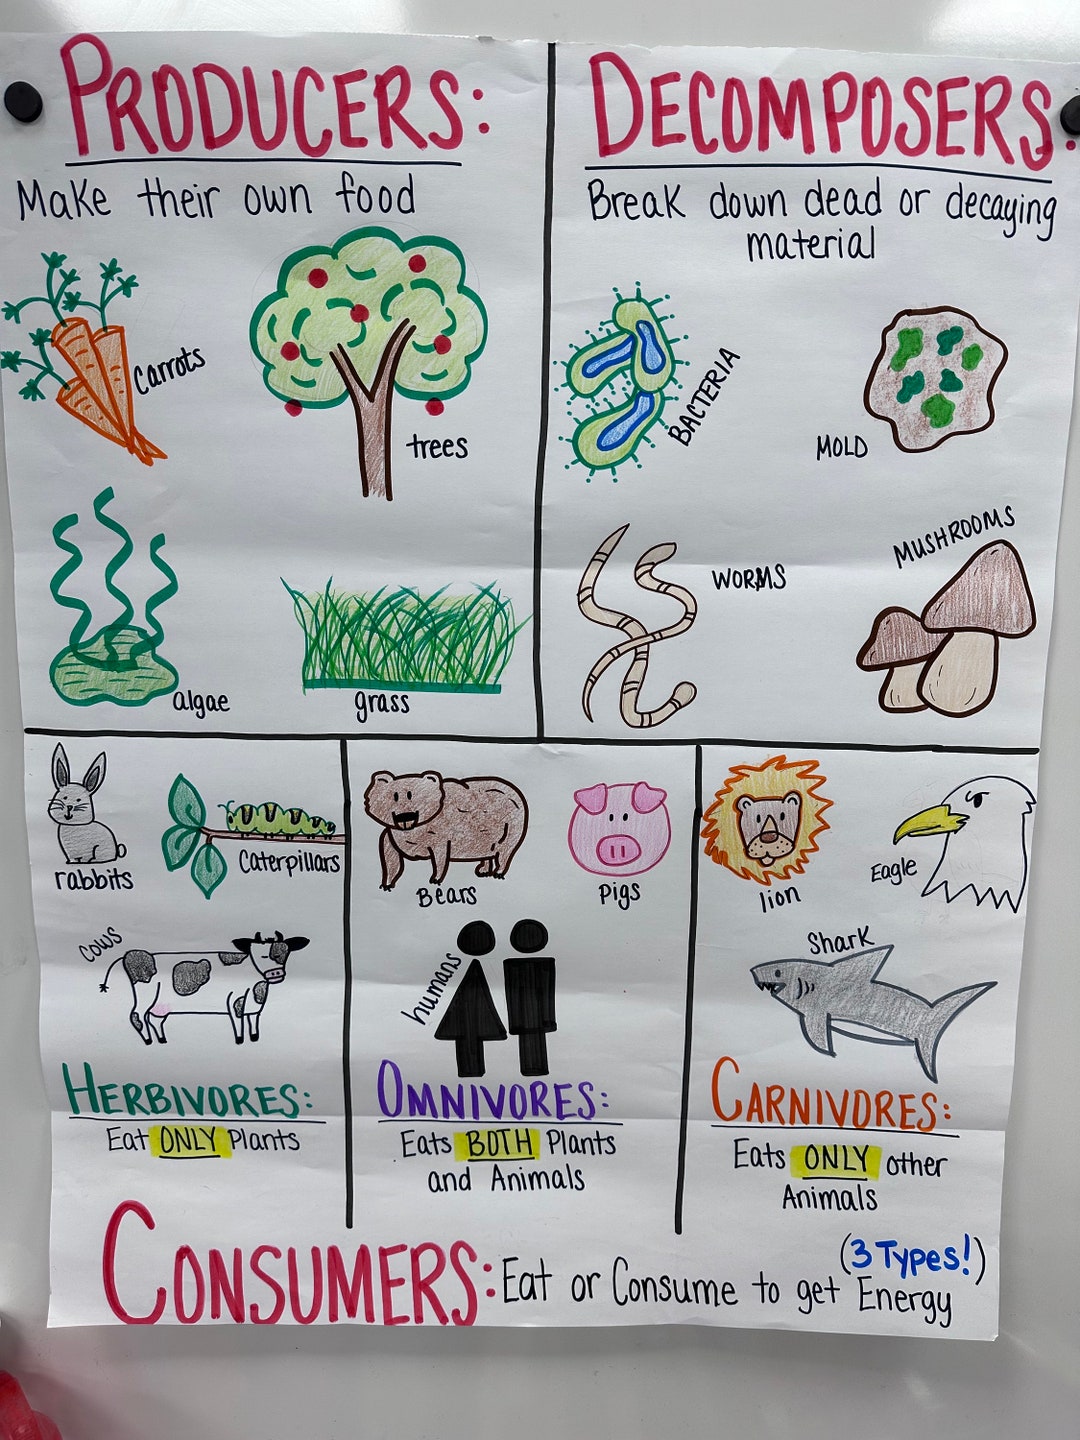 PRODUCERS:
Make their own food
carrots
trees
algae
grass
DECOMPOSERS:
Break down dead or decaying
material
BACTERIA
MOLD
WORMS
MUSHROOMS
rabbits
Caterpillars
cows
HERBIVORES:
Eat ONLY Plants
Bears
Pigs
humans
OMNIVORES:
Eats BOTH Plants
and Animals
lion
Eagle
Shark
CARNIVORES:
Eats ONLY other
Animals
CONSUMERS: Eat or Consume to get Energy
(3 Types!)